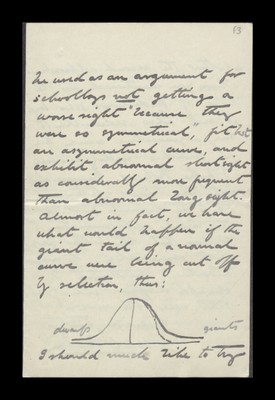 he used as an argument for
schoolboys not getting a
worse sight "because they
were so symmetrical", fit best
an asymmetrical curve, and
exhibit abnormal short sight
as considerably more frequent
than abnormal long sight.
Almost in fact, we have
what would happen if the
giant tail of a normal
curve were being cut off
by selection, thus:
dwarfs giants
I should much like to try